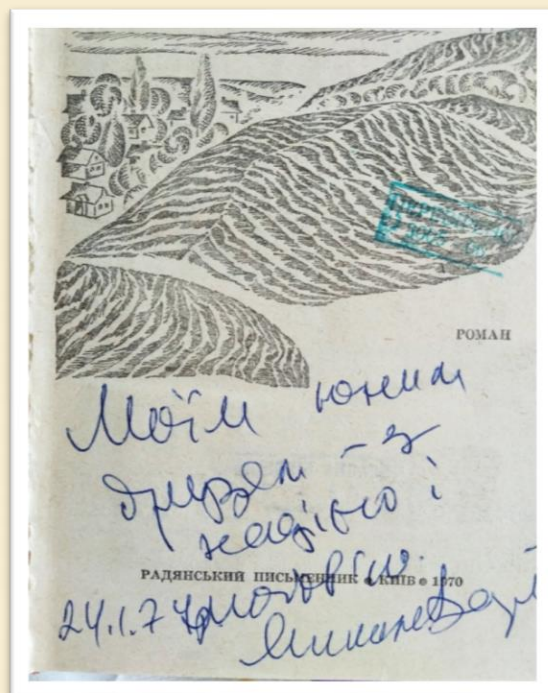 РОМАН
Моїм юним
друзям – з
надією і
РАДЯНСЬКИЙ ПИСЬМЕННИК • КИЇВ • 1970
любов'ю.
24.1.74